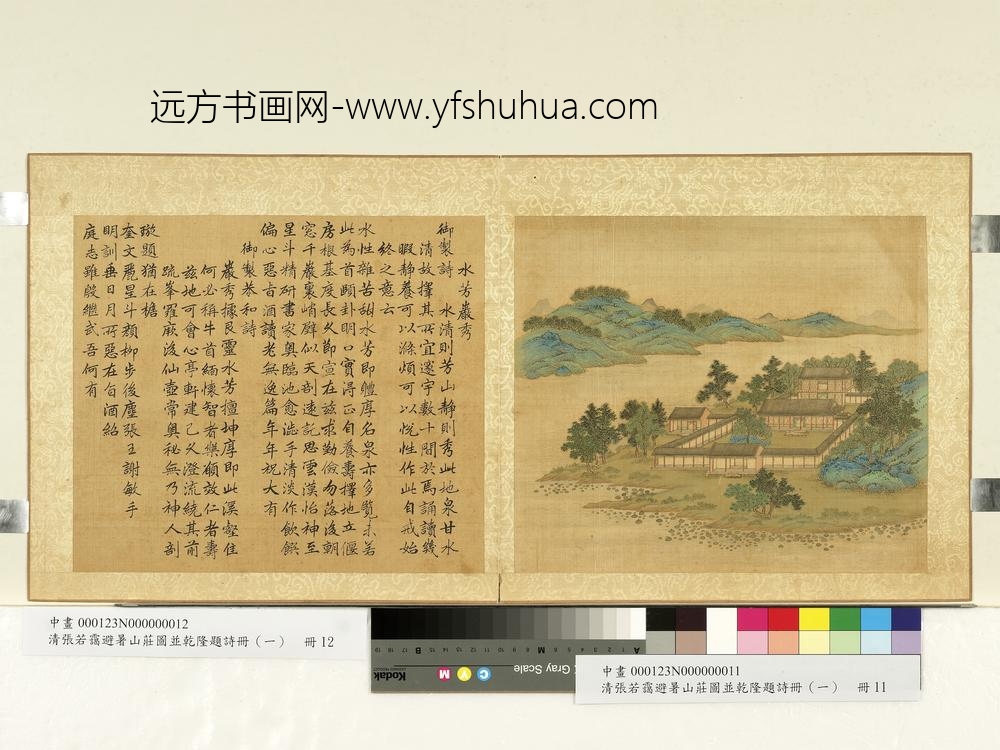 远方书画网-www.yfshuhua.com
水芳巖秀
御製詩 水清則芳山靜則秀此地泉甘水
清故擇其所宜邃宇數十間於焉誦讀幾
暇靜養可以滌煩可以悅性作此自戒始
終之意云
水性雜苦甜水芳即體厚名泉亦多覽未若
此為首頤卦明口實得正自養壽擇地立偃
房根基度長久節宣在茲求勤儉勿落後朝
窓千巖裏峭壁似天剖遠託思雲漢怡神至
星斗精研書家奧臨池愈澁手清淡作飲饌
偏心惡旨酒讀老無逸篇年年祝大有
御製恭和詩
巖秀據艮靈水芳擅坤厚即此溪壑佳
何必稱牛首緬懷智者樂願效仁者壽
茲地可會心亭軒建已久澄流繞其前
疏峯羅扆後仙壺常奧秘無乃神人剖
璇題猶在檐
奎文麗星斗顏柳步後塵張王謝敏手
明訓垂日月所惡在旨酒紹
庭志雖殷繼武吾何有
中畫 000123N000000012
清張若靄避暑山莊圖並乾隆題詩冊（一） 冊 12
Kodak
Gray Scale
C Y M
A 1 2 3 4 5 6 M 8 9 10 11 12 13 14 15 B 17 18 19
中畫 000123N000000011
清張若靄避暑山莊圖並乾隆題詩冊（一） 冊 11